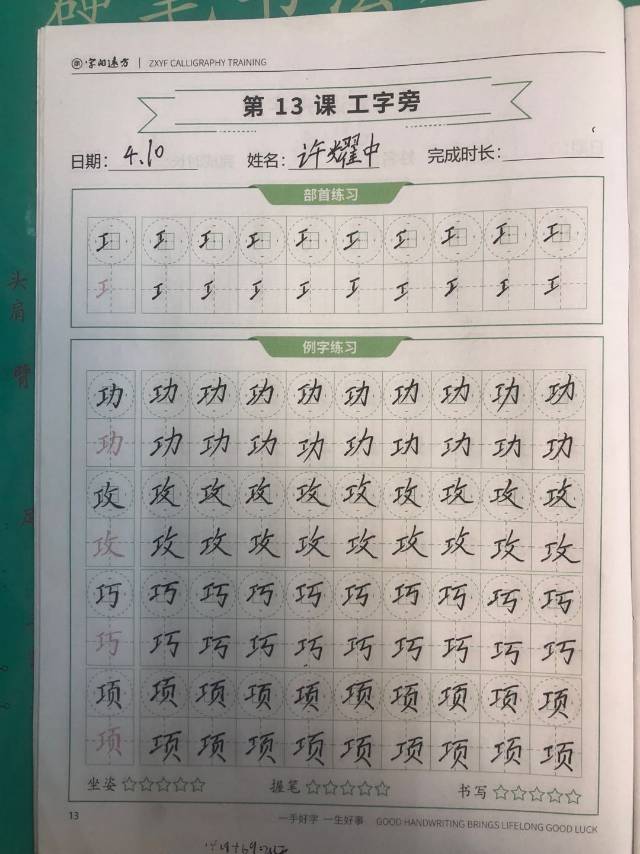 硬笔书法
字的远方 | ZXYF CALLIGRAPHY TRAINING
第 13 课 工字旁
日期: 4.10 姓名: 许耀中 完成时长:
部首练习
工 工 工 工 工 工 工 工 工 工
工 工 工 工 工 工 工 工 工 工
例字练习
功 功 功 功 功 功 功 功 功 功
功 功 功 功 功 功 功 功 功 功
攻 攻 攻 攻 攻 攻 攻 攻 攻 攻
攻 攻 攻 攻 攻 攻 攻 攻 攻 攻
巧 巧 巧 巧 巧 巧 巧 巧 巧 巧
巧 巧 巧 巧 巧 巧 巧 巧 巧 巧
项 项 项 项 项 项 项 项 项 项
项 项 项 项 项 项 项 项 项 项
坐姿 ☆☆☆☆☆ 握笔 ☆☆☆☆☆ 书写 ☆☆☆☆☆
13 一手好字 一生好事 GOOD HANDWRITING BRINGS LIFELONG GOOD LUCK
头
肩
臂
足